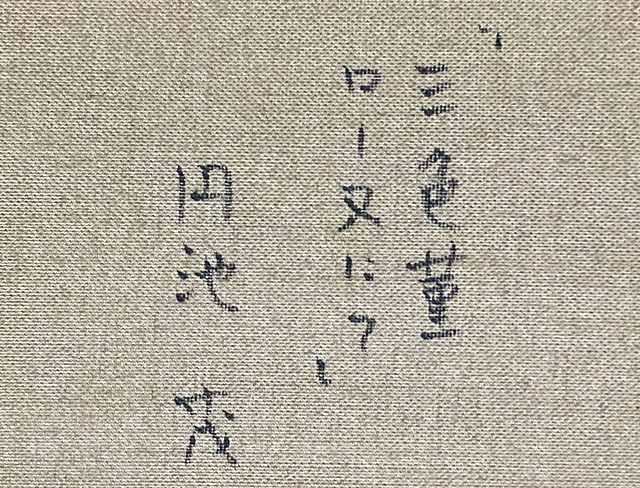 「三色菫
ローヌにて」
円池 茂